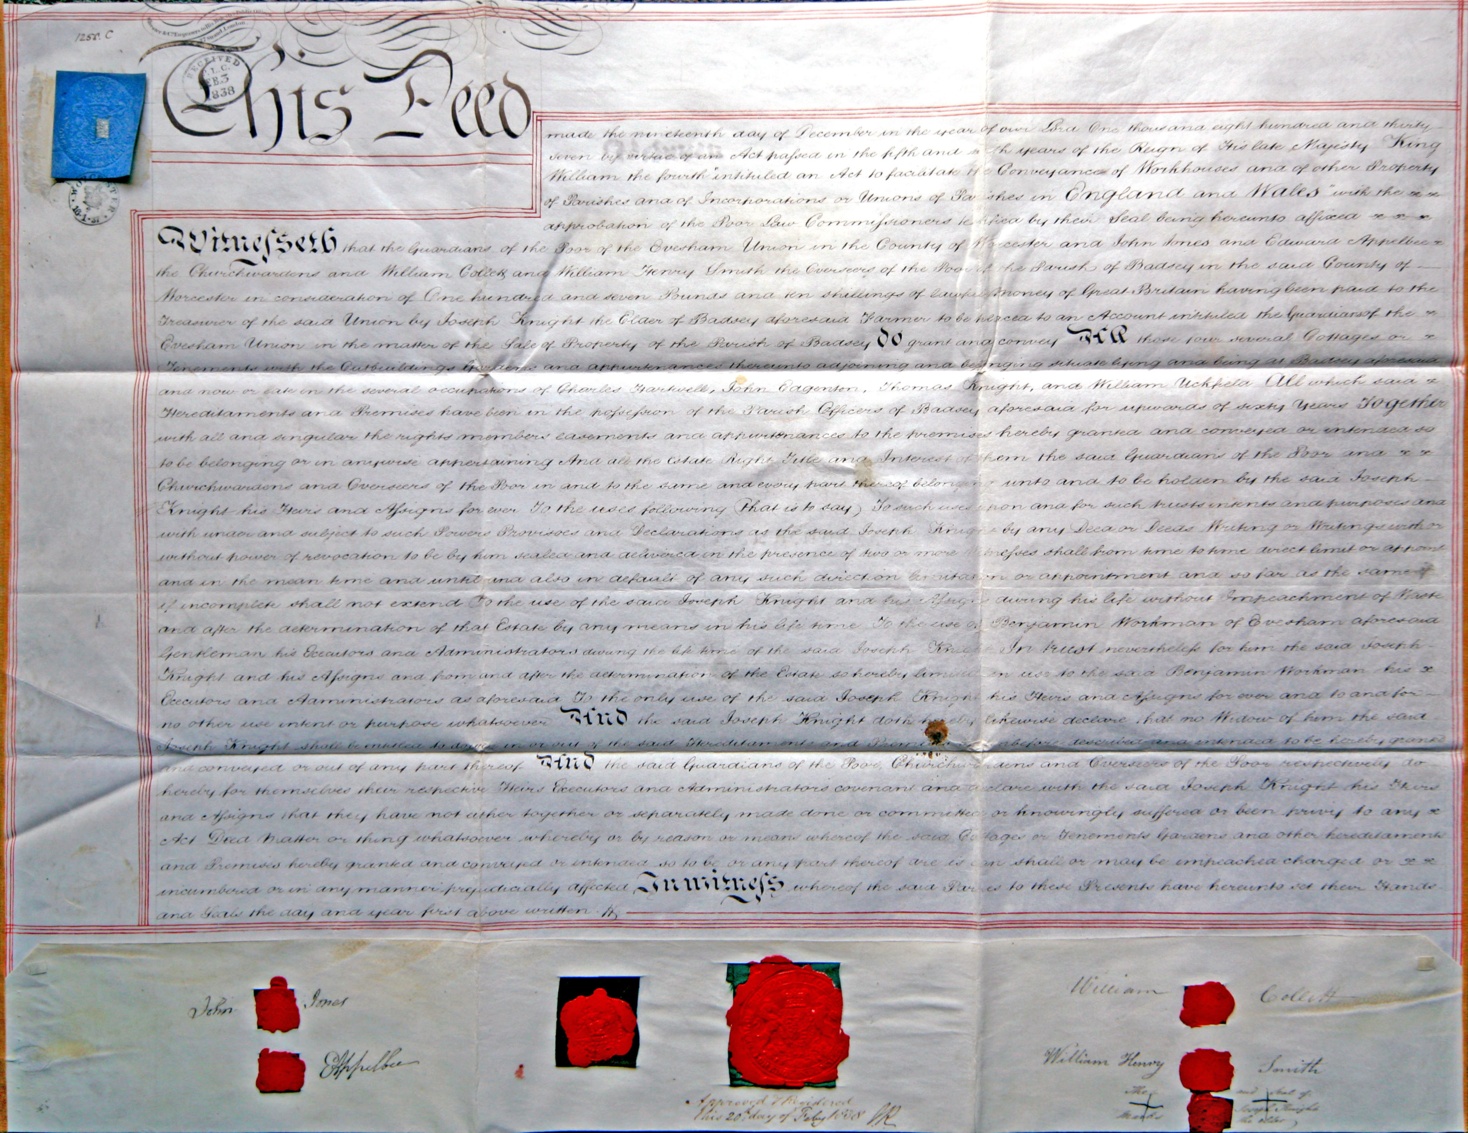 1258. C
RECEIVED
P.L.C.
FEB. 3
1838
This Deed
made the nineteenth day of December in the year of our Lord One thousand eight hundred and thirty
seven by virtue of an Act passed in the fifth and years of the Reign of His late Majesty King
William the fourth intituled an Act to facilitate the Conveyance of Workhouses and of other Property
of Parishes and of Incorporations or Unions of Parishes in England and Wales" with the
approbation of the Poor Law Commissioners testified by their Seal being hereunto affixed
Witnesseth that the Guardians of the Poor of the Evesham Union in the County of Worcester and John Jones and Edward Appelbee
the Churchwardens and William Collett and William Henry Smith the Overseers of the Poor of the Parish of Badsey in the said County of
Worcester in consideration of One hundred and seven Pounds and ten shillings of lawful money of Great Britain having been paid to the
Treasurer of the said Union by Joseph Knight the Elder of Badsey aforesaid Farmer to be placed to an Account intituled the Guardians of the
Evesham Union in the matter of the Sale of Property of the Parish of Badsey Do grant and convey All those four several Cottages or
Tenements with the Outbuildings Gardens and appurtenances thereunto adjoining and belonging situate lying and being at Badsey aforesaid
and now or late in the several occupations of Charles Hartwell, John Edgenton, Thomas Knight, and William Uckfeld All which said
Hereditaments and Premises have been in the possession of the Parish Officers of Badsey aforesaid for upwards of sixty Years Together
with all and singular the rights members easements and appurtenances to the premises hereby granted and conveyed or intended so
to be belonging or in anywise appertaining And all the Estate Right Title and Interest of them the said Guardians of the Poor and
Churchwardens and Overseers of the Poor in and to the same and every part thereof belonging unto and to be holden by the said Joseph
Knight his Heirs and Assigns for ever To the uses following (That is to say) To such uses upon and for such trusts intents and purposes and
with under and subject to such Powers Provisoes and Declarations as the said Joseph Knight by any Deed or Deeds Writing or Writings with or
without power of revocation to be by him sealed and delivered in the presence of two or more witnesses shall from time to time direct limit or appoint
and in the mean time and until and also in default of any such direction limitation or appointment and so far as the same if
if incomplete shall not extend To the use of the said Joseph Knight and his Assigns during his life without Impeachment of Waste
and after the determination of that Estate by any means in his life time To the use of Benjamin Workman of Evesham aforesaid
Gentleman his Executors and Administrators during the life time of the said Joseph Knight In trust nevertheless for him the said Joseph
Knight and his Assigns and from and after the determination of the Estate so hereby limited in use to the said Benjamin Workman his
Executors and Administrators as aforesaid To the only use of the said Joseph Knight his Heirs and Assigns for ever and to and for
no other use intent or purpose whatsoever And the said Joseph Knight doth hereby likewise declare that no Widow of him the said
Joseph Knight shall be entitled to dower in or out of the said Hereditaments and Premises before described and intended to be hereby granted
and conveyed or out of any part thereof And the said Guardians of the Poor, Churchwardens and Overseers of the Poor respectively do
hereby for themselves their respective Heirs Executors and Administrators covenant and declare with the said Joseph Knight his Heirs
and Assigns that they have not either together or separately made done or committed or knowingly suffered or been privy to any
Act Deed Matter or thing whatsoever whereby or by reason or means whereof the said Cottages or Tenements Gardens and other hereditaments
and Premises hereby granted and conveyed or intended so to be or any part thereof are is can shall or may be impeached charged or
incumbered or in any manner prejudicially affected In witness whereof the said Parties to these Presents have hereunto set their Hands
and Seals the day and year first above written
John Jones
EAppelbee
William Collett
William Henry Smith
The mark and Seal of Joseph Knight the elder
Approved & Registered
This 20th day of Feby 1838